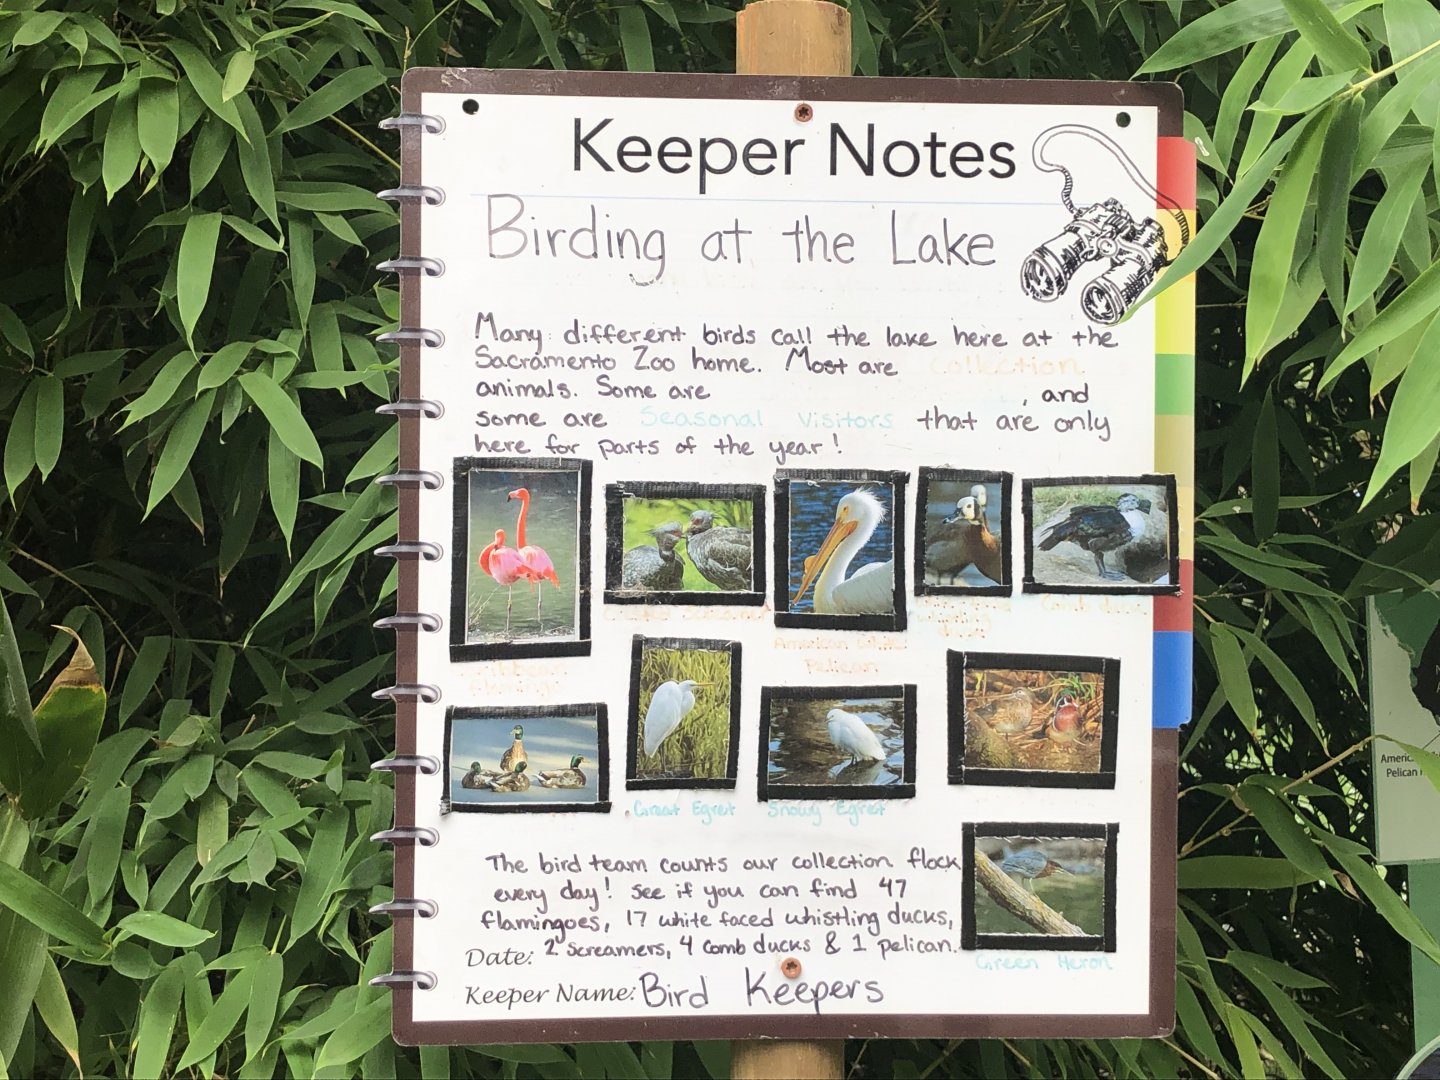 Keeper Notes
Birding at the Lake
Many different birds call the lake here at the
Sacramento Zoo home. Most are collection
animals. Some are , and
some are Seasonal Visitors that are only
here for parts of the year!
Caribbean
Flamingo
American White
Pelican
whistling
duck
Comb duck
Great Egret
Snowy Egret
The bird team counts our collection flock
every day! See if you can find 47
flamingoes, 17 white faced whistling ducks,
Date: 2 screamers, 4 comb ducks & 1 pelican.
Green Heron
Keeper Name: Bird Keepers
Pelican